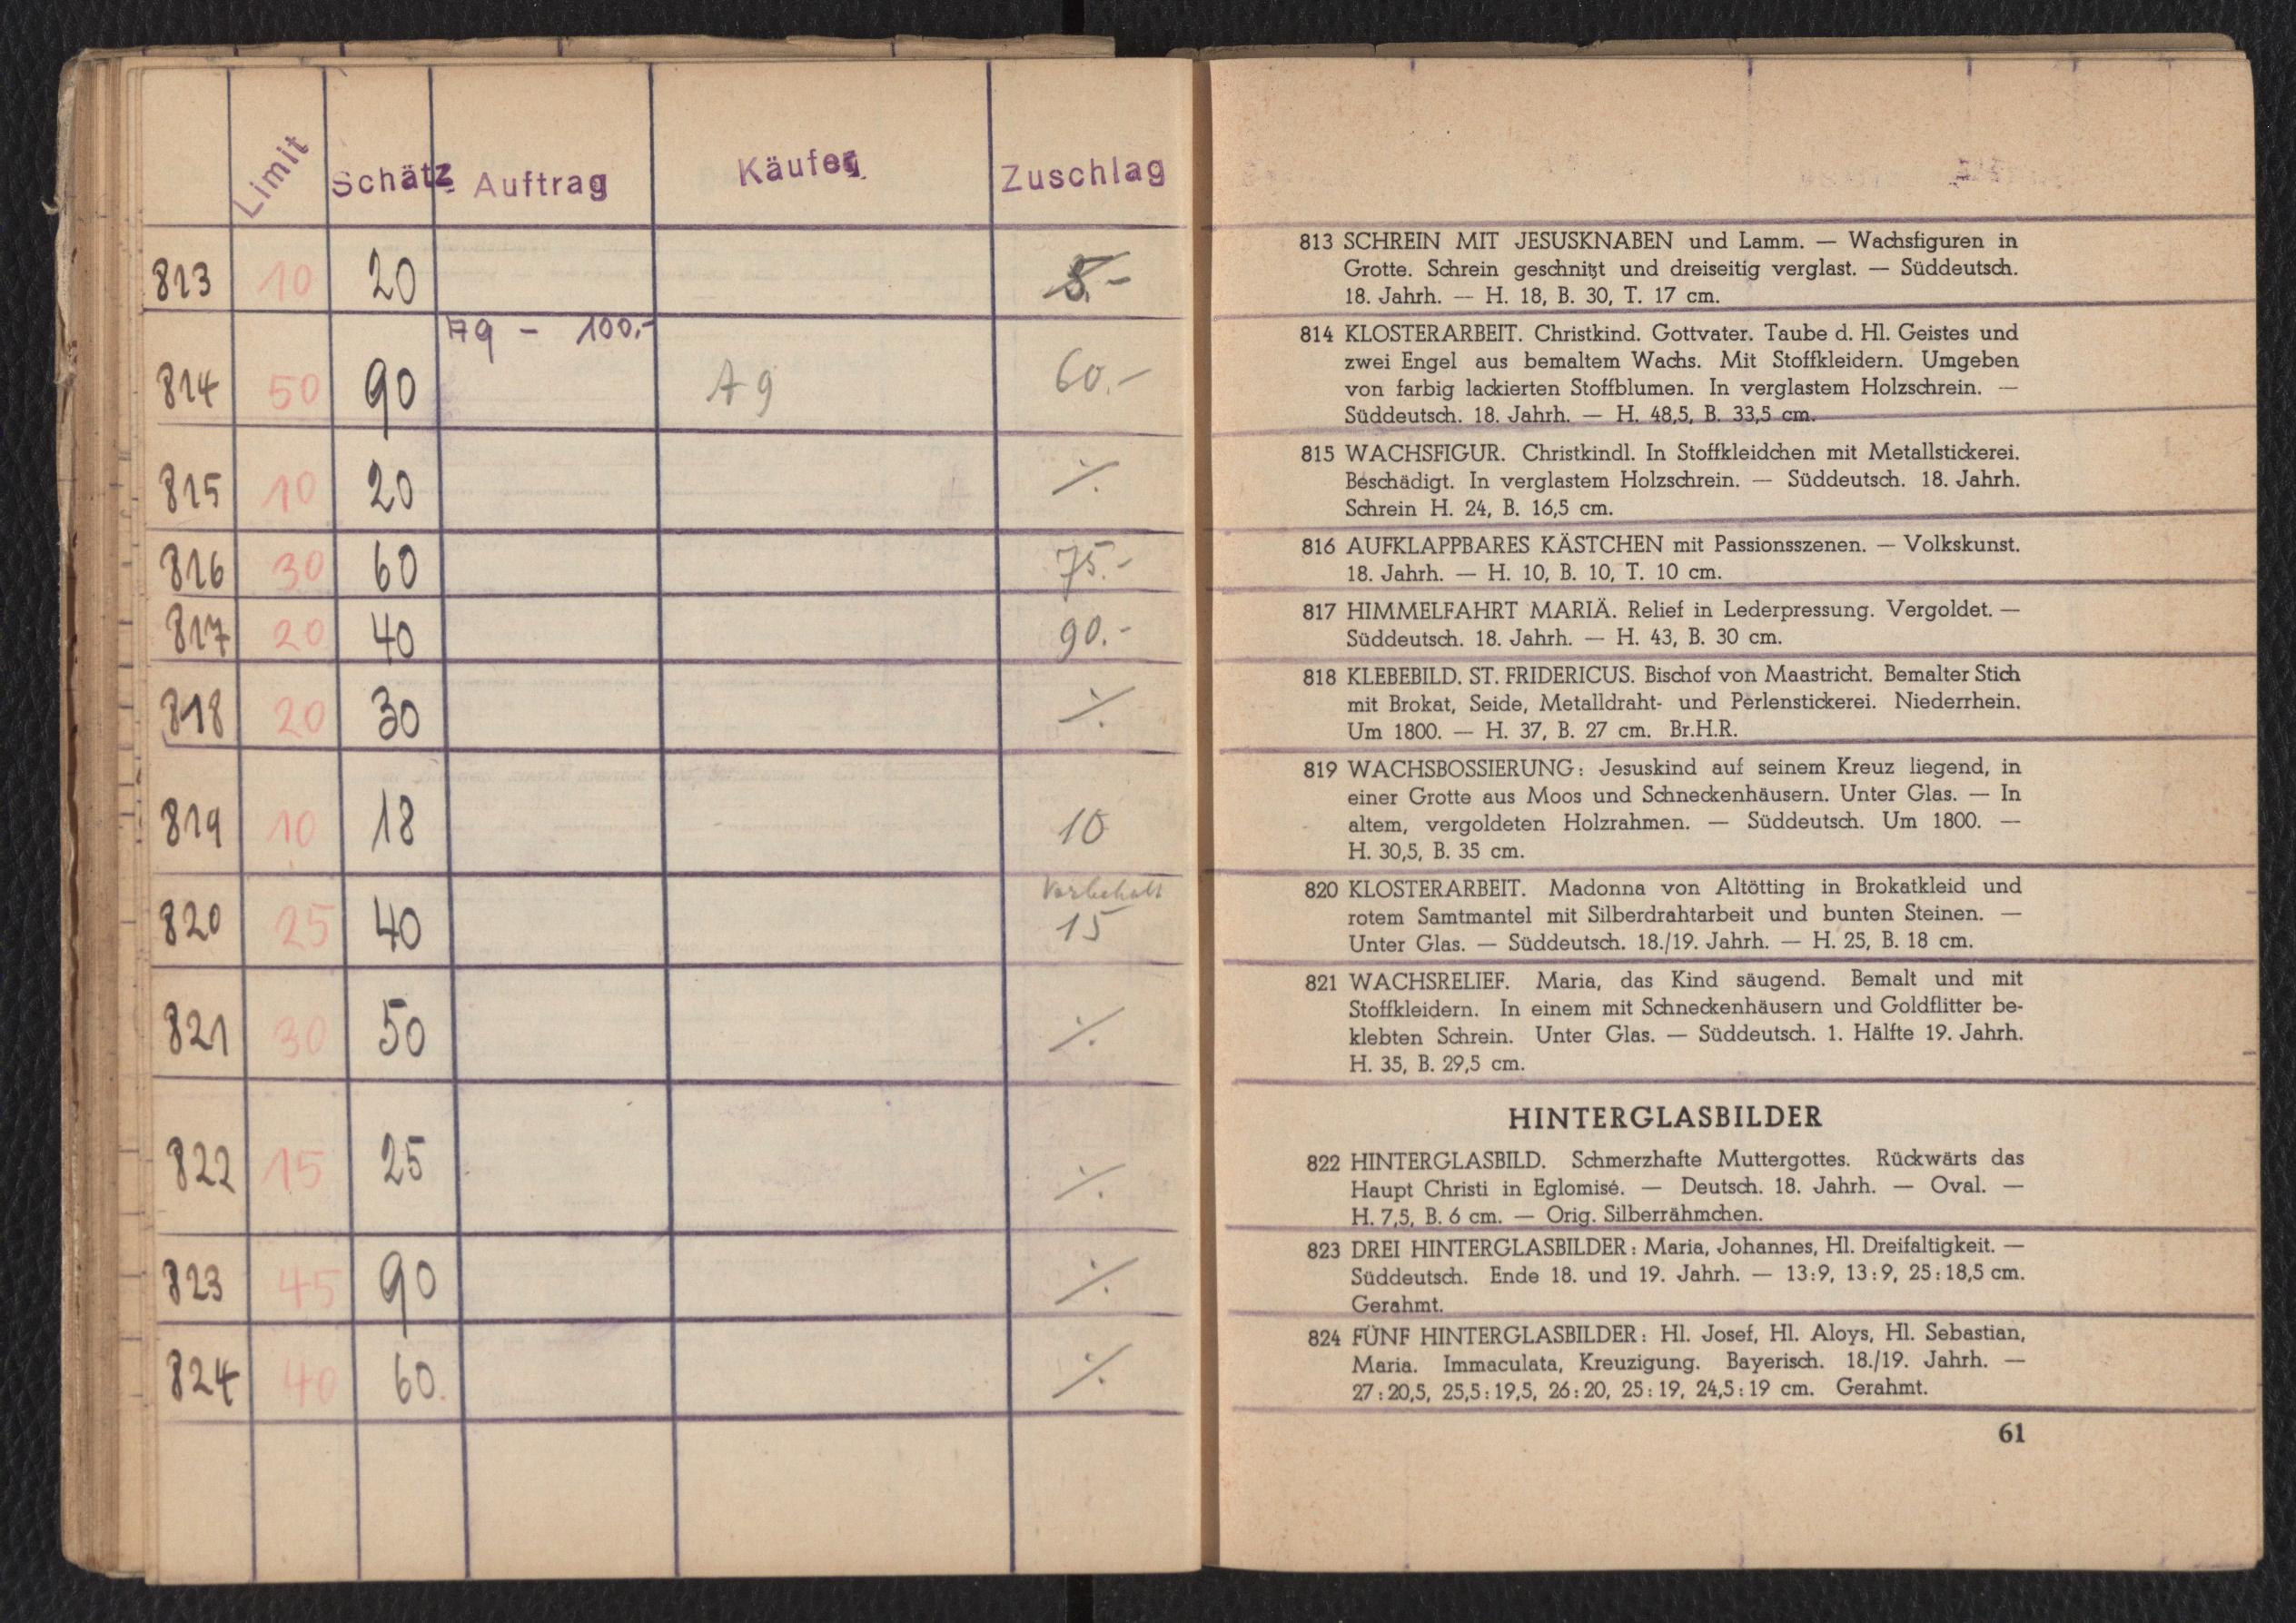 Limit Schätz Auftrag Käufer Zuschlag
813 10 20 5.-
79 - 100.-
814 50 90 79 60.-
815 10 20 ⁒
816 30 60 75.-
817 20 40 90.-
818 20 30 ⁒
819 10 18 10
Vorbehalt
820 25 40 15
821 30 50 ⁒
822 15 25 ⁒
823 45 90 ⁒
824 40 60. ⁒
813 SCHREIN MIT JESUSKNABEN und Lamm. — Wachsfiguren in
Grotte. Schrein geschnitzt und dreiseitig verglast. — Süddeutsch.
18. Jahrh. — H. 18, B. 30, T. 17 cm.
814 KLOSTERARBEIT. Christkind. Gottvater. Taube d. Hl. Geistes und
zwei Engel aus bemaltem Wachs. Mit Stoffkleidern. Umgeben
von farbig lackierten Stoffblumen. In verglastem Holzschrein. —
Süddeutsch. 18. Jahrh. — H. 48,5, B. 33,5 cm.
815 WACHSFIGUR. Christkindl. In Stoffkleidchen mit Metallstickerei.
Beschädigt. In verglastem Holzschrein. — Süddeutsch. 18. Jahrh.
Schrein H. 24, B. 16,5 cm.
816 AUFKLAPPBARES KÄSTCHEN mit Passionsszenen. — Volkskunst.
18. Jahrh. — H. 10, B. 10, T. 10 cm.
817 HIMMELFAHRT MARIÄ. Relief in Lederpressung. Vergoldet. —
Süddeutsch. 18. Jahrh. — H. 43, B. 30 cm.
818 KLEBEBILD. ST. FRIDERICUS. Bischof von Maastricht. Bemalter Stich
mit Brokat, Seide, Metalldraht- und Perlenstickerei. Niederrhein.
Um 1800. — H. 37, B. 27 cm. Br.H.R.
819 WACHSBOSSIERUNG: Jesuskind auf seinem Kreuz liegend, in
einer Grotte aus Moos und Schneckenhäusern. Unter Glas. — In
altem, vergoldeten Holzrahmen. — Süddeutsch. Um 1800. —
H. 30,5, B. 35 cm.
820 KLOSTERARBEIT. Madonna von Altötting in Brokatkleid und
rotem Samtmantel mit Silberdrahtarbeit und bunten Steinen. —
Unter Glas. — Süddeutsch. 18./19. Jahrh. — H. 25, B. 18 cm.
821 WACHSRELIEF. Maria, das Kind säugend. Bemalt und mit
Stoffkleidern. In einem mit Schneckenhäusern und Goldflitter be-
klebten Schrein. Unter Glas. — Süddeutsch. 1. Hälfte 19. Jahrh.
H. 35, B. 29,5 cm.
HINTERGLASBILDER
822 HINTERGLASBILD. Schmerzhafte Muttergottes. Rückwärts das
Haupt Christi in Eglomisé. — Deutsch. 18. Jahrh. — Oval. —
H. 7,5, B. 6 cm. — Orig. Silberrähmchen.
823 DREI HINTERGLASBILDER: Maria, Johannes, Hl. Dreifaltigkeit. —
Süddeutsch. Ende 18. und 19. Jahrh. — 13:9, 13:9, 25:18,5 cm.
Gerahmt.
824 FÜNF HINTERGLASBILDER: Hl. Josef, Hl. Aloys, Hl. Sebastian,
Maria. Immaculata, Kreuzigung. Bayerisch. 18./19. Jahrh. —
27:20,5, 25,5:19,5, 26:20, 25:19, 24,5:19 cm. Gerahmt.
61